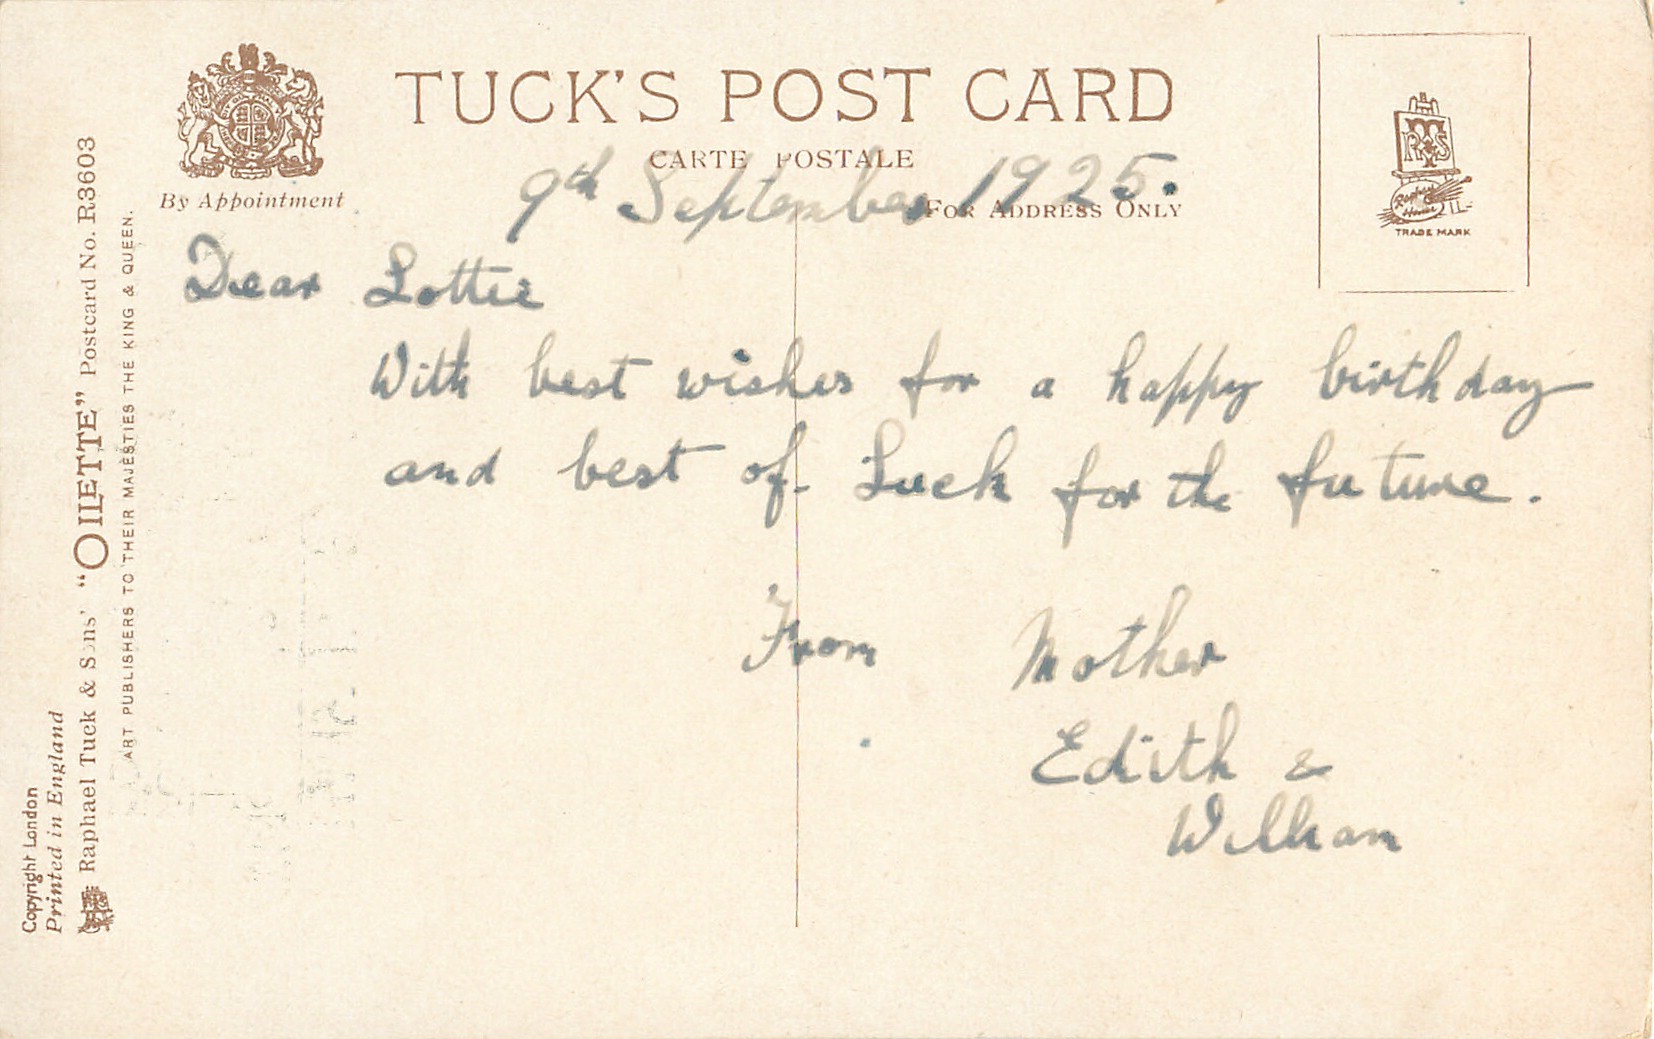 TUCK'S POST CARD
CARTE POSTALE
By Appointment
FOR ADDRESS ONLY
TRADE MARK
9th September 1925.
Dear Lottie
With best wishes for a happy birthday
and best of. Luck for the future.
From Mother
Edith &
William
Copyright London
Printed in England
Raphael Tuck & Sons' "OILETTE" Postcard No. R3603
ART PUBLISHERS TO THEIR MAJESTIES THE KING & QUEEN.